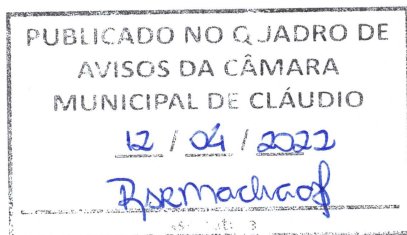 PUBLICADO NO QUADRO DE
AVISOS DA CÂMARA
MUNICIPAL DE CLÁUDIO
12 / 04 / 2022